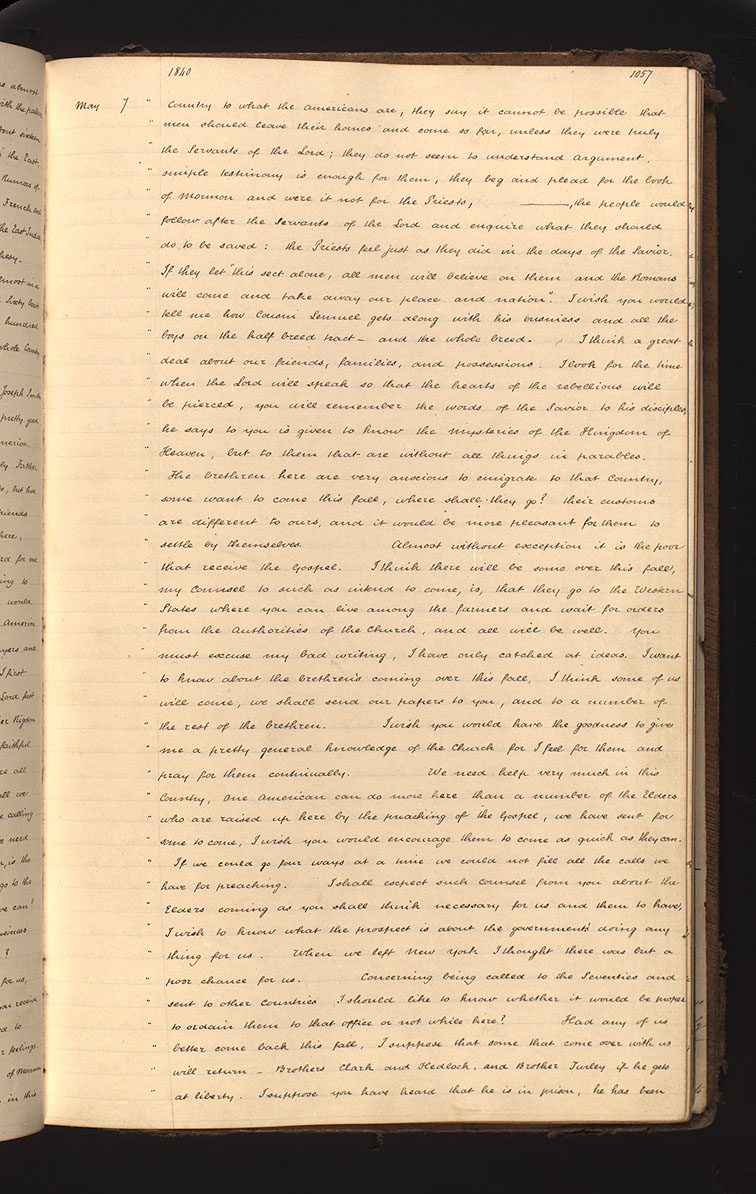 1840 1057
May 7 " Country to what the americans are, they say it cannot be possible that
" men should leave their homes and come so far, unless they were truly
" the Servants of the Lord; they do not seem to understand argument,
" simple testimony is enough for them, they beg and plead for the book
" of Mormon and were it not for the Priests, ———, the people would
" follow after the Servants of the Lord and enquire what they should
" do, to be saved: the Priests feel just as they did in the days of the Savior.
" If they let "this sect alone, all men will believe on them and the Romans
" will come and take away our place and nation". I wish you would
" tell me how Cousin Lemuel gets along with his business and all the
" boys on the half breed tract — and the whole breed. I think a great
" deal about our friends, families, and possessions. I look for the time
" when the Lord will speak so that the hearts of the rebellious will
" be pierced, you will remember the words of the Savior to his disciples,
" he says to you is given to know the mysteries of the Kingdom of
" Heaven, but to them that are without all things in parables.
" The brethren here are very anxious to emigrate to that Country,
" some want to come this fall, where shall they go? their customs
" are different to ours, and it would be more pleasant for them to
" settle by themselves. Almost without exception it is the poor
" that receive the Gospel. I think there will be some over this fall,
" my Counsel to such as intend to come, is, that they go to the Western
" States where you can live among the farmers and wait for orders
" from the Authorities of the Church, and all will be well. You
" must excuse my bad writing, I have only catched at ideas. I want
" to know about the brethren's coming over this fall, I think some of us
" will come, we shall send our papers to you, and to a number of
" the rest of the brethren. I wish you would have the goodness to give
" me a pretty general knowledge of the Church for I feel for them and
" pray for them continually. We need help very much in this
" Country, One American can do more here than a number of the Elders
" who are raised up here by the preaching of the Gospel, we have sent for
" some to come, I wish you would encourage them to come as quick as they can.
" If we could go four ways at a time we could not fill all the calls we
" have for preaching. I shall expect such Counsel from you about the
" Elders coming as you shall think necessary for us and them to have,
" I wish to know what the prospect is about the government's doing any
" thing for us. When we left New York I thought there was but a
" poor chance for us. Concerning being called to the Seventies and
" sent to other Countries I should like to know whether it would be proper
" to ordain them to that office or not while here? Had any of us
" better come back this fall, I suppose that some that come over with us
" will return — Brothers Clark and Hedlock, and Brother Turley if he gets
" at liberty. I suppose you have heard that he is in prison, he has been